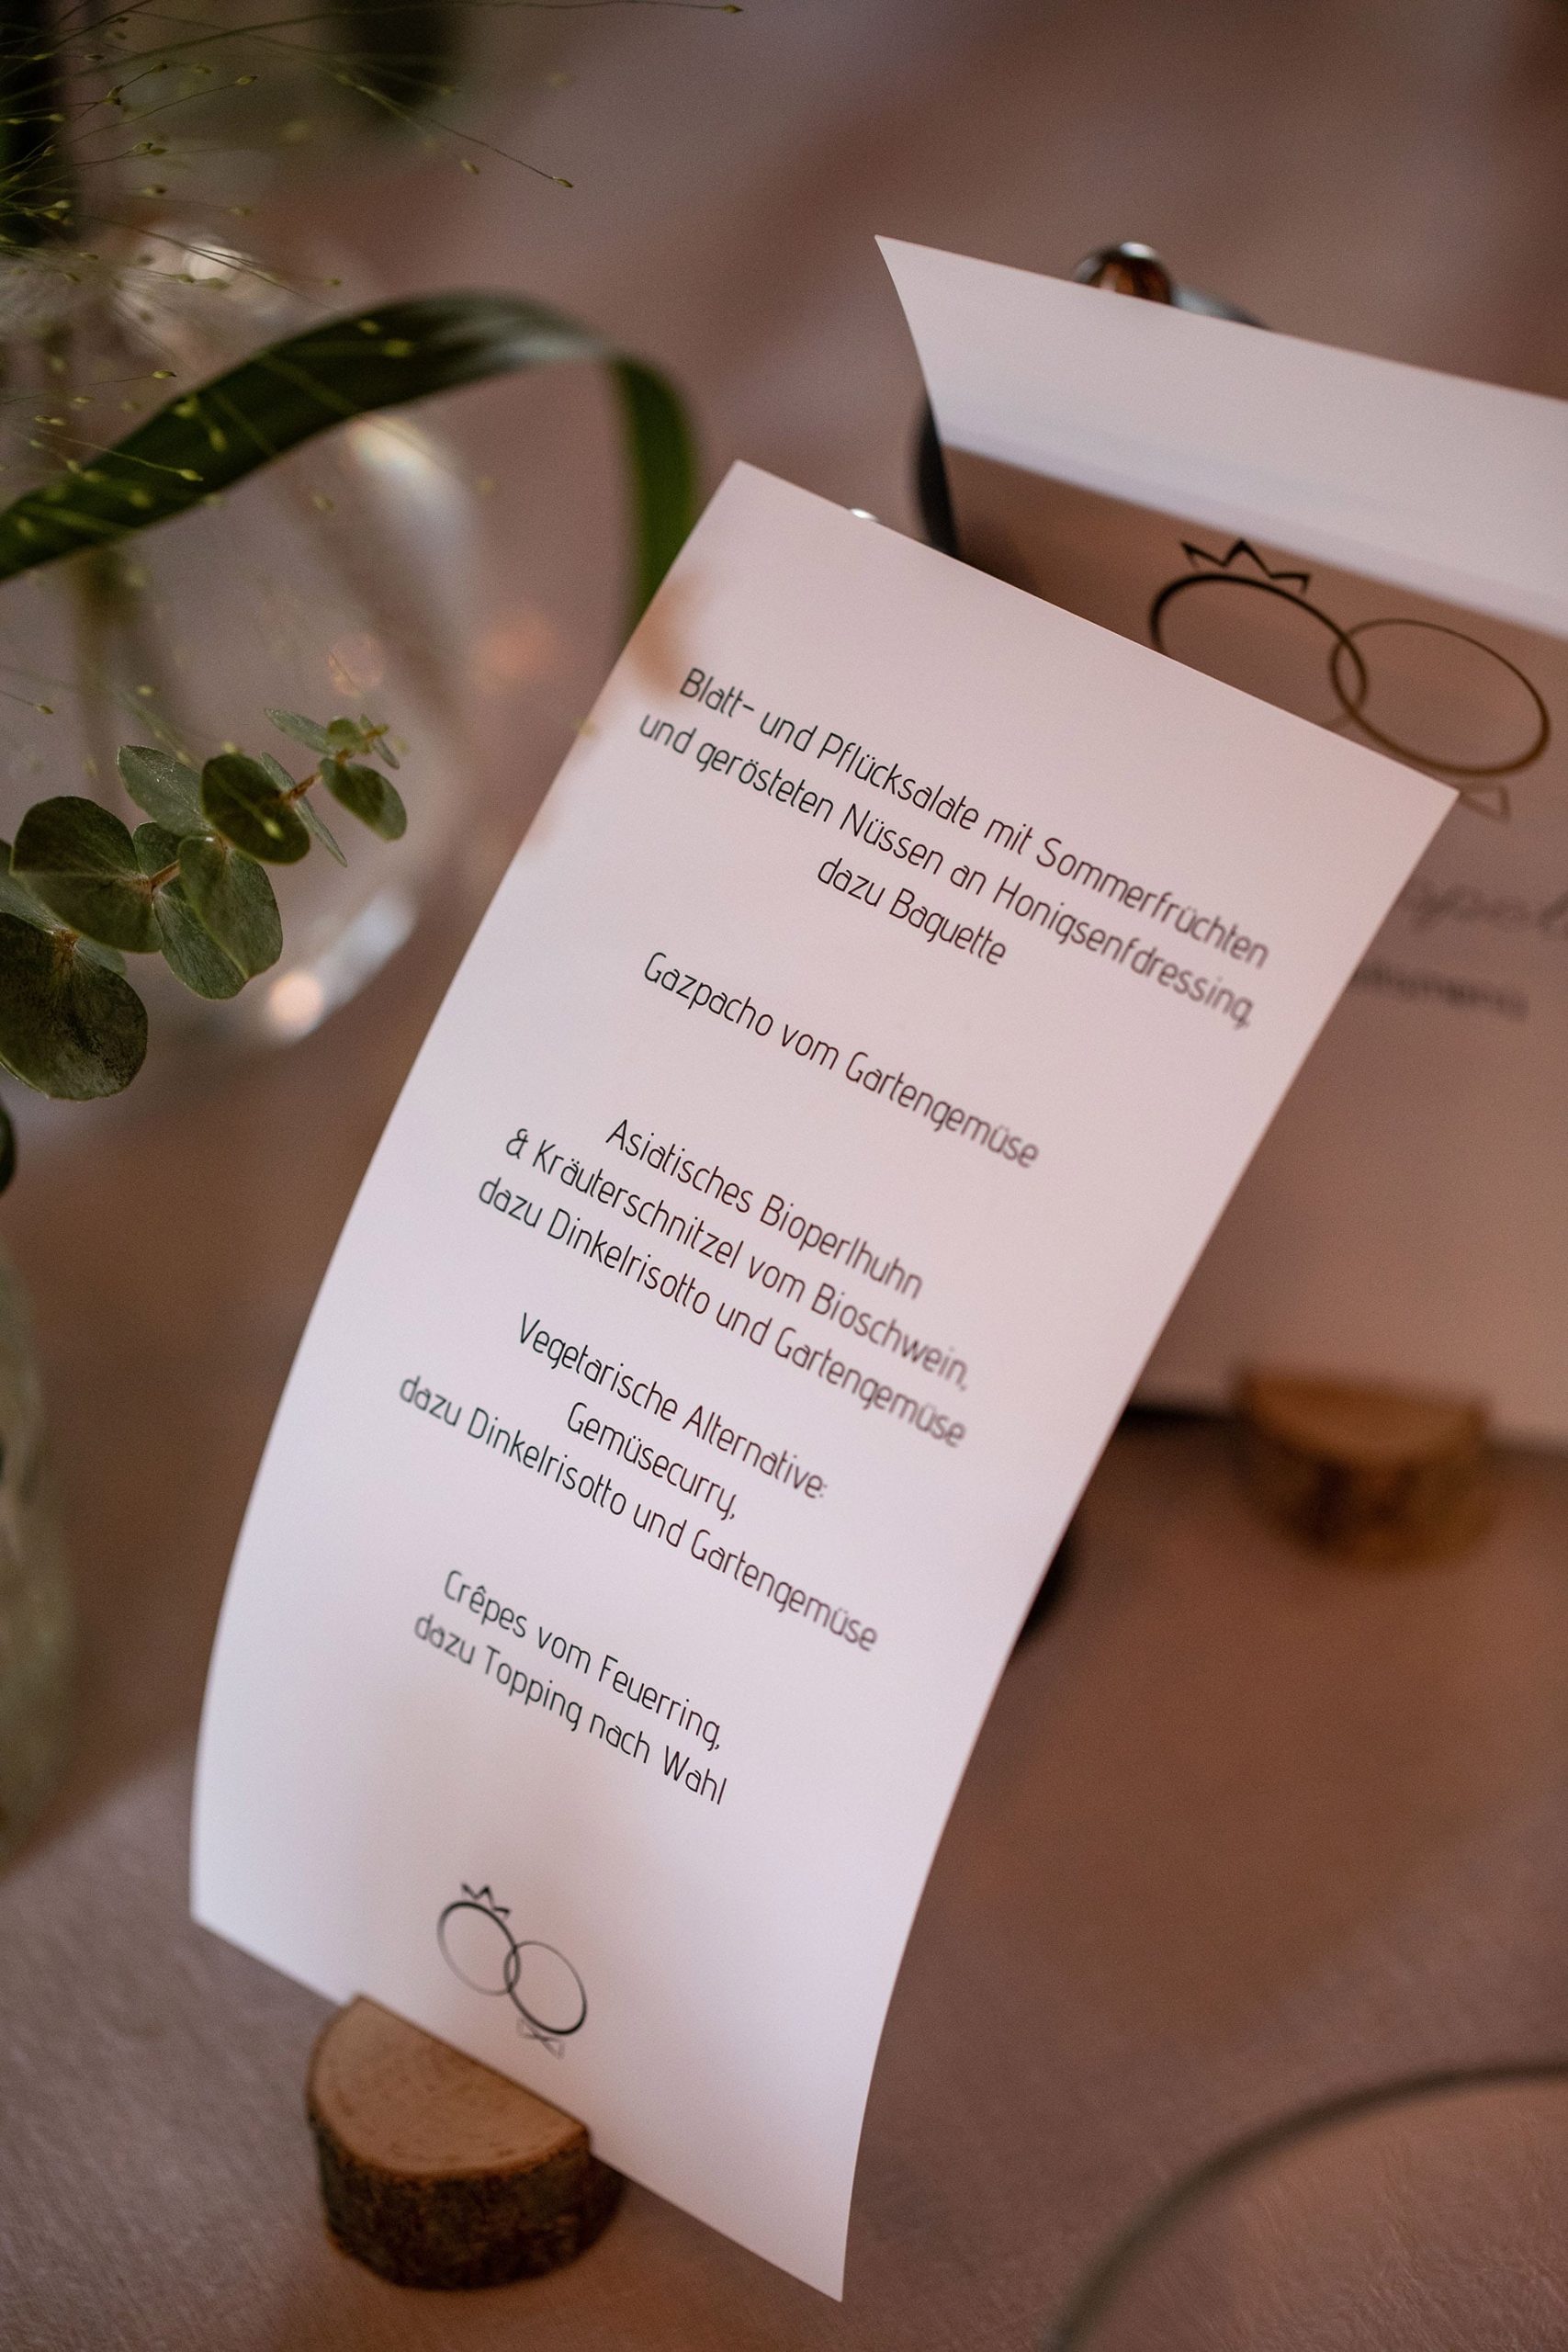 Blatt- und Pflücksalate mit Sommerfrüchten
und gerösteten Nüssen an Honigsenfdressing,
dazu Baguette
Gazpacho vom Gartengemüse
Asiatisches Bioperlhuhn
& Kräuterschnitzel vom Bioschwein,
dazu Dinkelrisotto und Gartengemüse
Vegetarische Alternative:
Gemüsecurry,
dazu Dinkelrisotto und Gartengemüse
Crêpes vom Feuerring,
dazu Topping nach Wahl